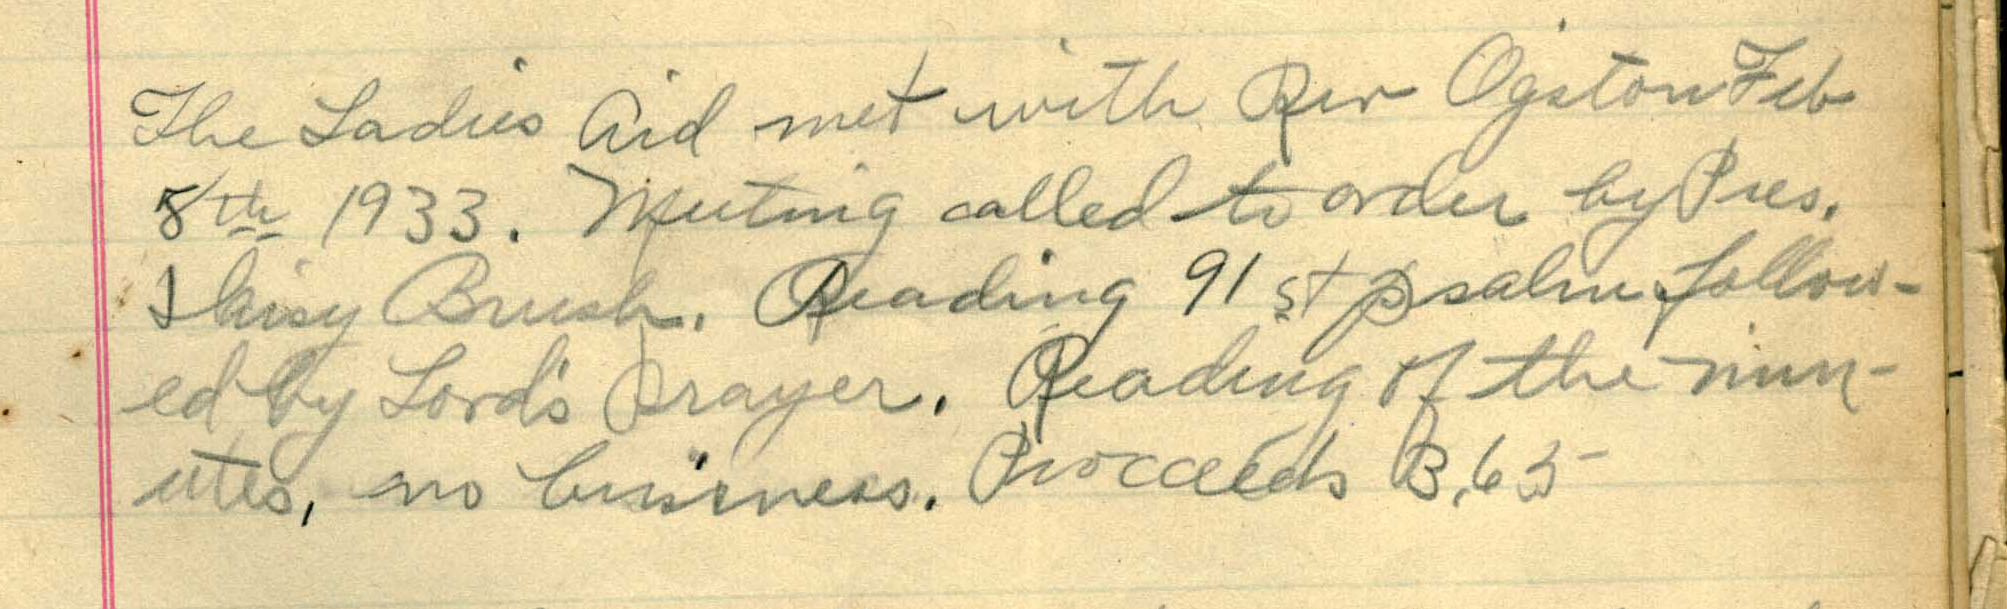 The Ladies Aid met with Rev Ogston Feb
8th 1933. Meeting called to order by Pres.
Daisy Brush. Reading 91st psalm follow-
ed by Lord's prayer. Reading of the min-
utes, no business. Proceeds 3.65